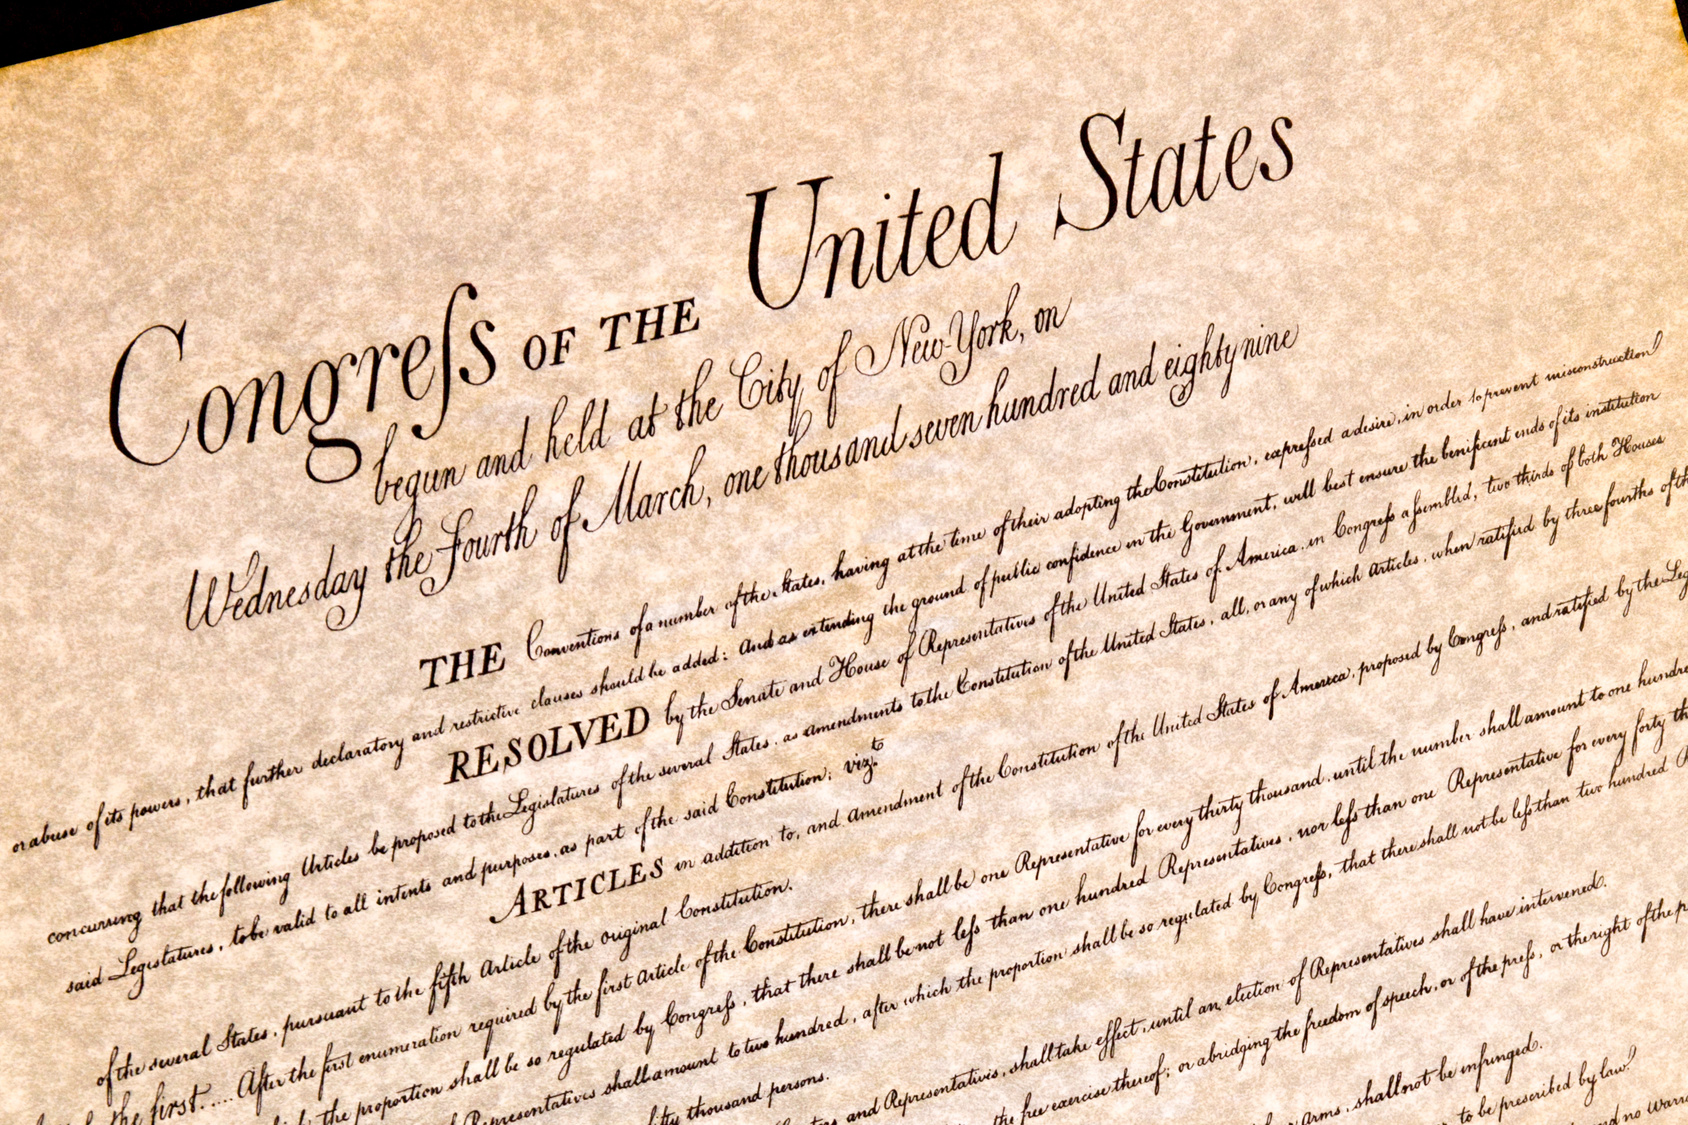 Congreſs OF THE United States
begun and held at the City of New-York, on
Wednesday the Fourth of March, one thousand seven hundred and eighty nine
THE Conventions of a number of the States, having at the time of their adopting the Constitution, expreſsed a desire, in order to prevent misconstruction
or abuse of its powers, that further declaratory and restrictive clauses should be added: And as extending the ground of public confidence in the Government, will best ensure the benificent ends of its institution
RESOLVED by the Senate and House of Representatives of the United States of America, in Congreſs aſsembled, two thirds of both Houses
concurring that the following Articles be proposed to the Legislatures of the several States, as amendments to the Constitution of the United States, all, or any of which Articles, when ratified by three fourths of the
said Legislatures, to be valid to all intents and purposes, as part of the said Constitution; vizt.
ARTICLES in addition to, and amendment of the Constitution of the United States of America, proposed by Congreſs, and ratified by the Leg
of the several States, pursuant to the fifth Article of the original Constitution.
the first..... After the first enumeration required by the first Article of the Constitution, there shall be one Representative for every thirty thousand, until the number shall amount to one hundred
the proportion shall be so regulated by Congreſs, that there shall be not leſs than one hundred Representatives, nor leſs than one Representative for every forty th
Representatives shall amount to two hundred, after which the proportion shall be so regulated by Congreſs, that there shall not be leſs than two hundred R
fifty thousand persons.
and Representatives, shall take effect, until an election of Representatives shall have intervened.
the free exercise thereof; or abridging the freedom of speech, or of the preſs, or the right of the p
Arms, shall not be infringed.
to be prescribed by law.
and no Warra